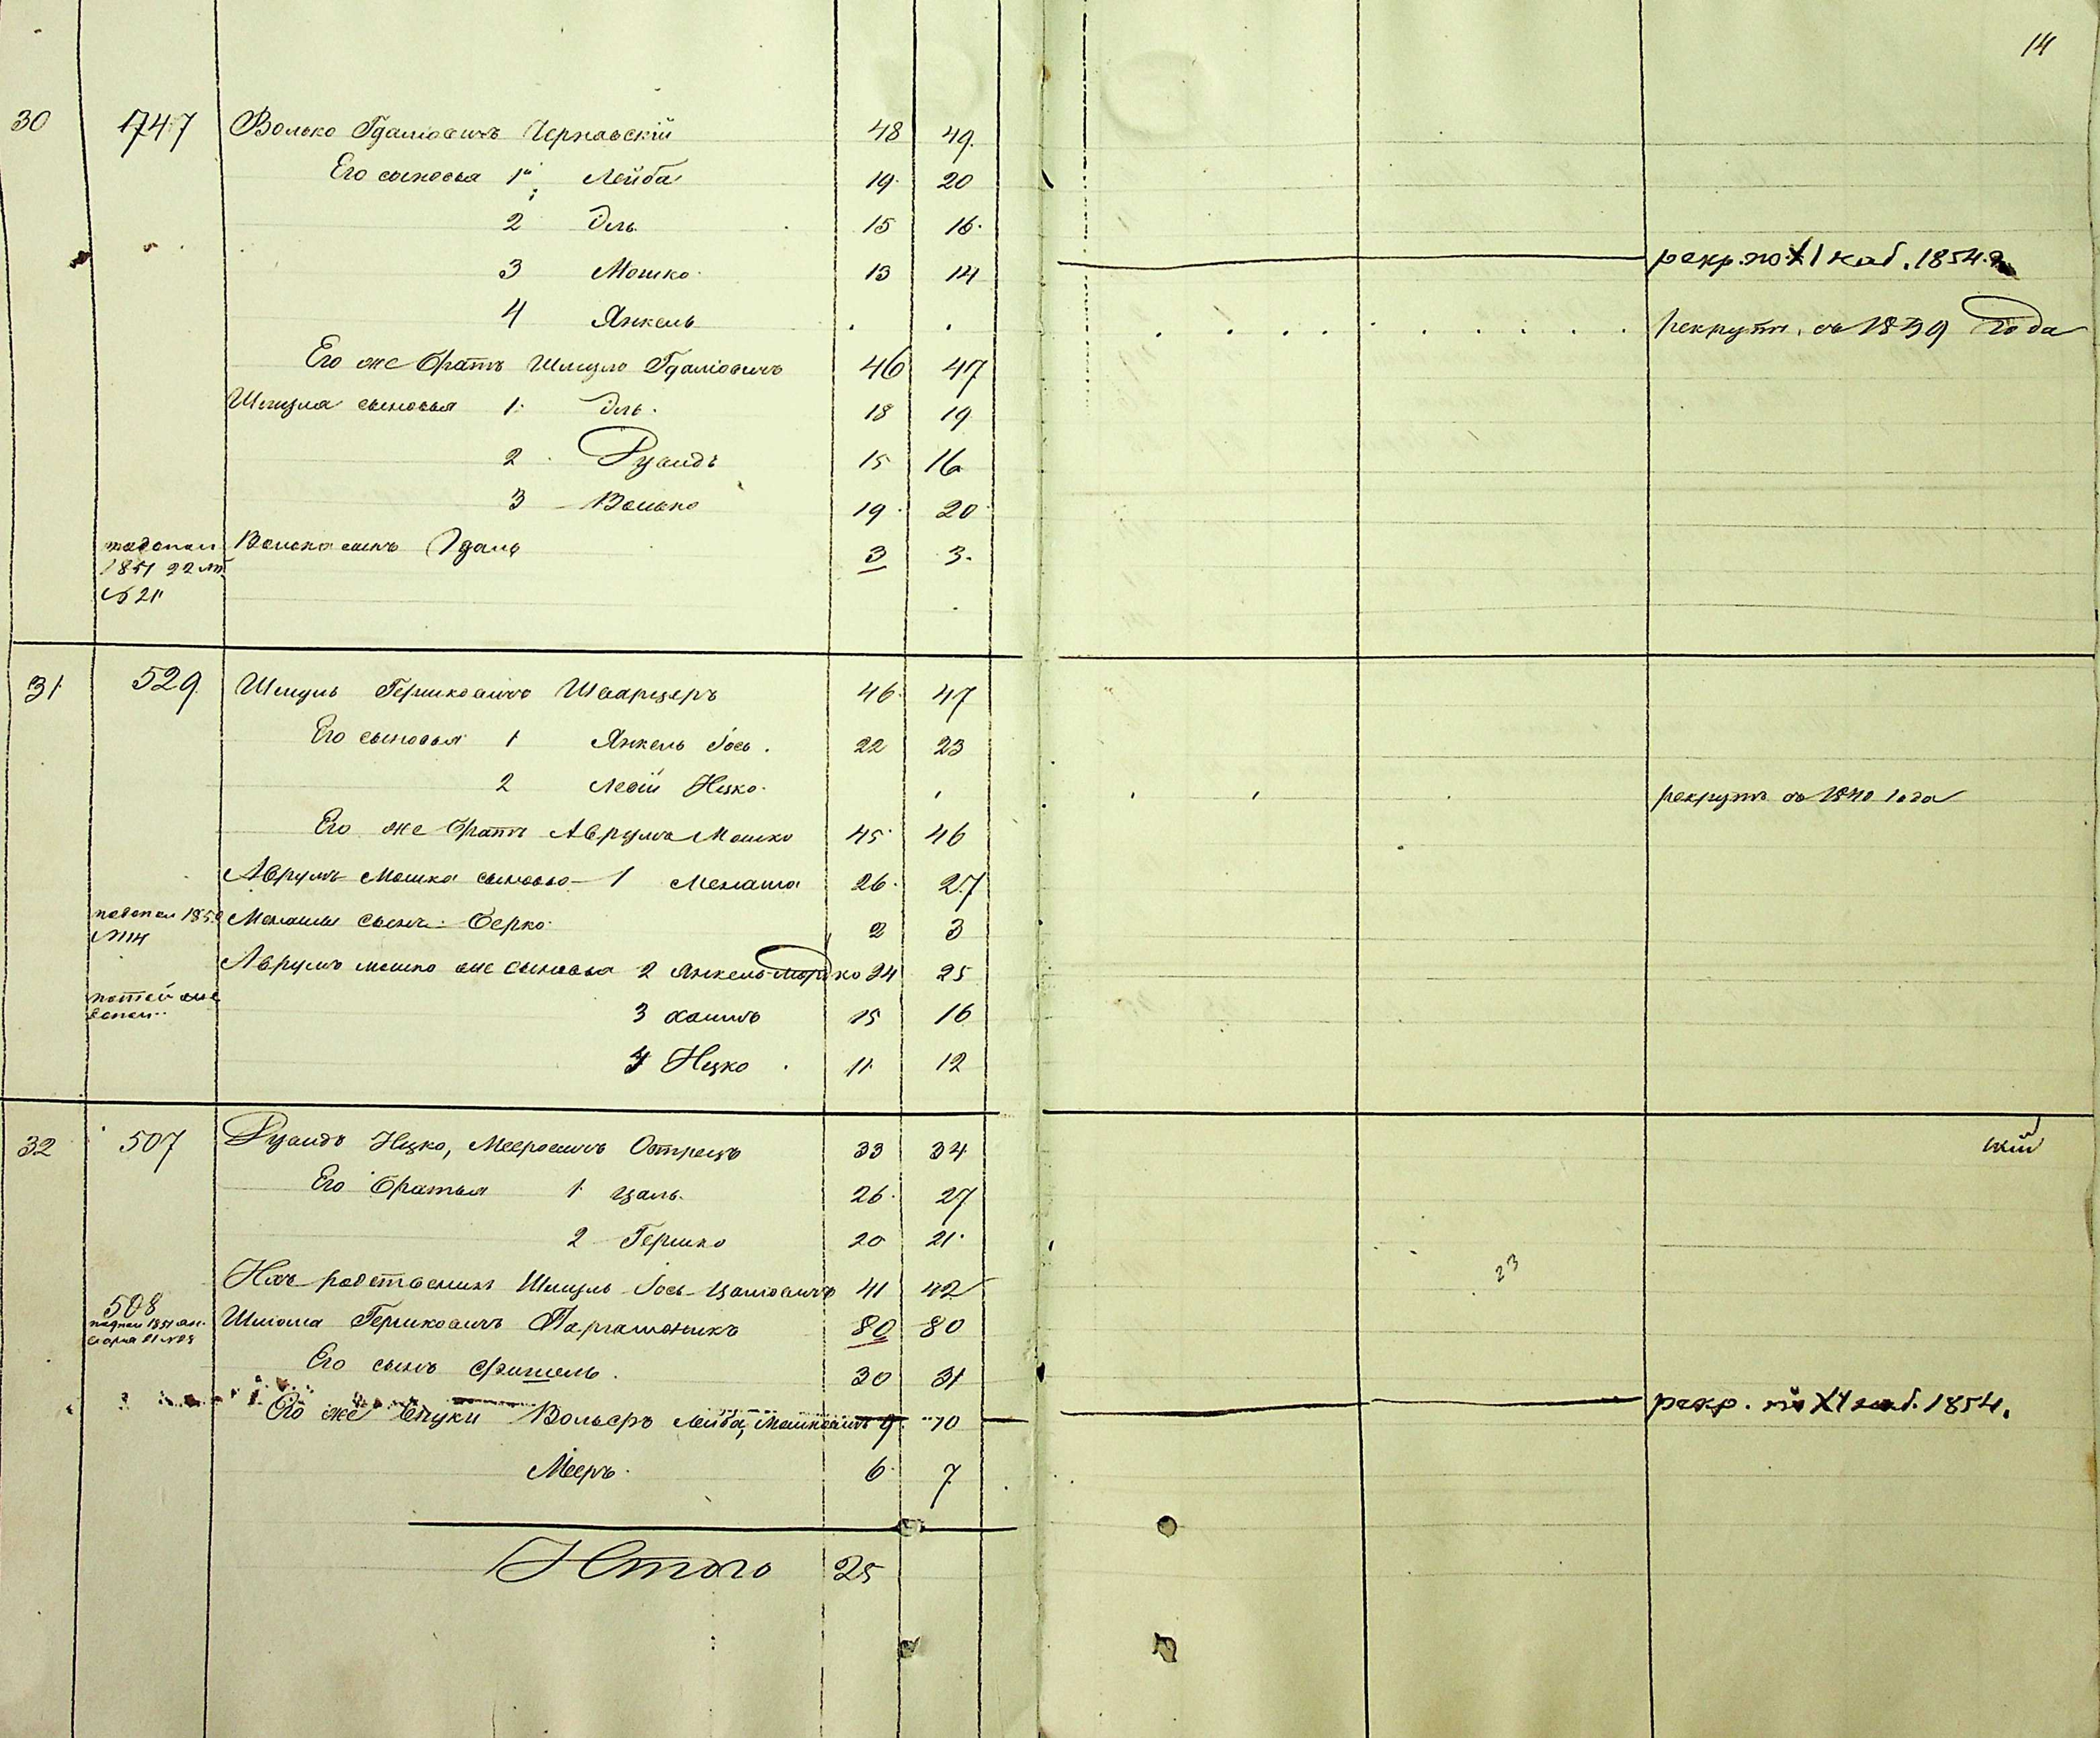 14
30 1747 Волько Гдаліовичъ Чернавскій 48 49
Его сыновья 1й Лейба 19 20
2 Эль 15 16
3 Мошко 13 14 рекр. по XI наб. 1854 г.
4 Янкель рекрутъ съ 1839 года
Его же братъ Шмуло Гдаліовичъ 46 47
Шмуля сыновья 1 Эль 18 19
2 Рувидъ 15 16
3 Волько 19 20
Волька сынъ Гдаль 3 3
1851 22
№ 21
31 529 Шмуль Гершковичъ Шварцеръ 46 47
Его сыновья 1 Янкель Іось 22 23
2 Левій Ицко рекрутъ съ 1840 года
Его же братъ Аврумъ Мошко 45 46
Аврумъ Мошка сыновья 1 Менаша 26 27
Менаши сынъ Берко 2 3
Аврумъ Мошко же сыновья 2 Янкель Мордко 24 25
3 Хаимъ 15 16
4 Ицко 11 12
32 507 Рувидъ Ицко, Мееровичъ Острецъ 33 34 кій
Его братья 1 Цаль 26 27
2 Гершко 20 21
23
Ихъ родственникъ Шмуль Іось Цаліовичъ 41 42
508 Шліома Гершковичъ 80 80
Его сынъ Фишель 30 31
Его же внуки Вольфъ Лейба, Мошковичъ 9 10 рекр. по XI наб. 1854.
Мееръ 6 7
Итого 25